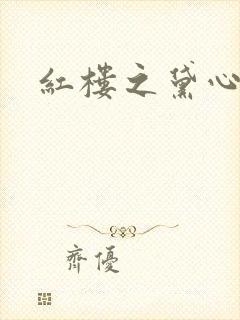 紅樓之黛心
齊優